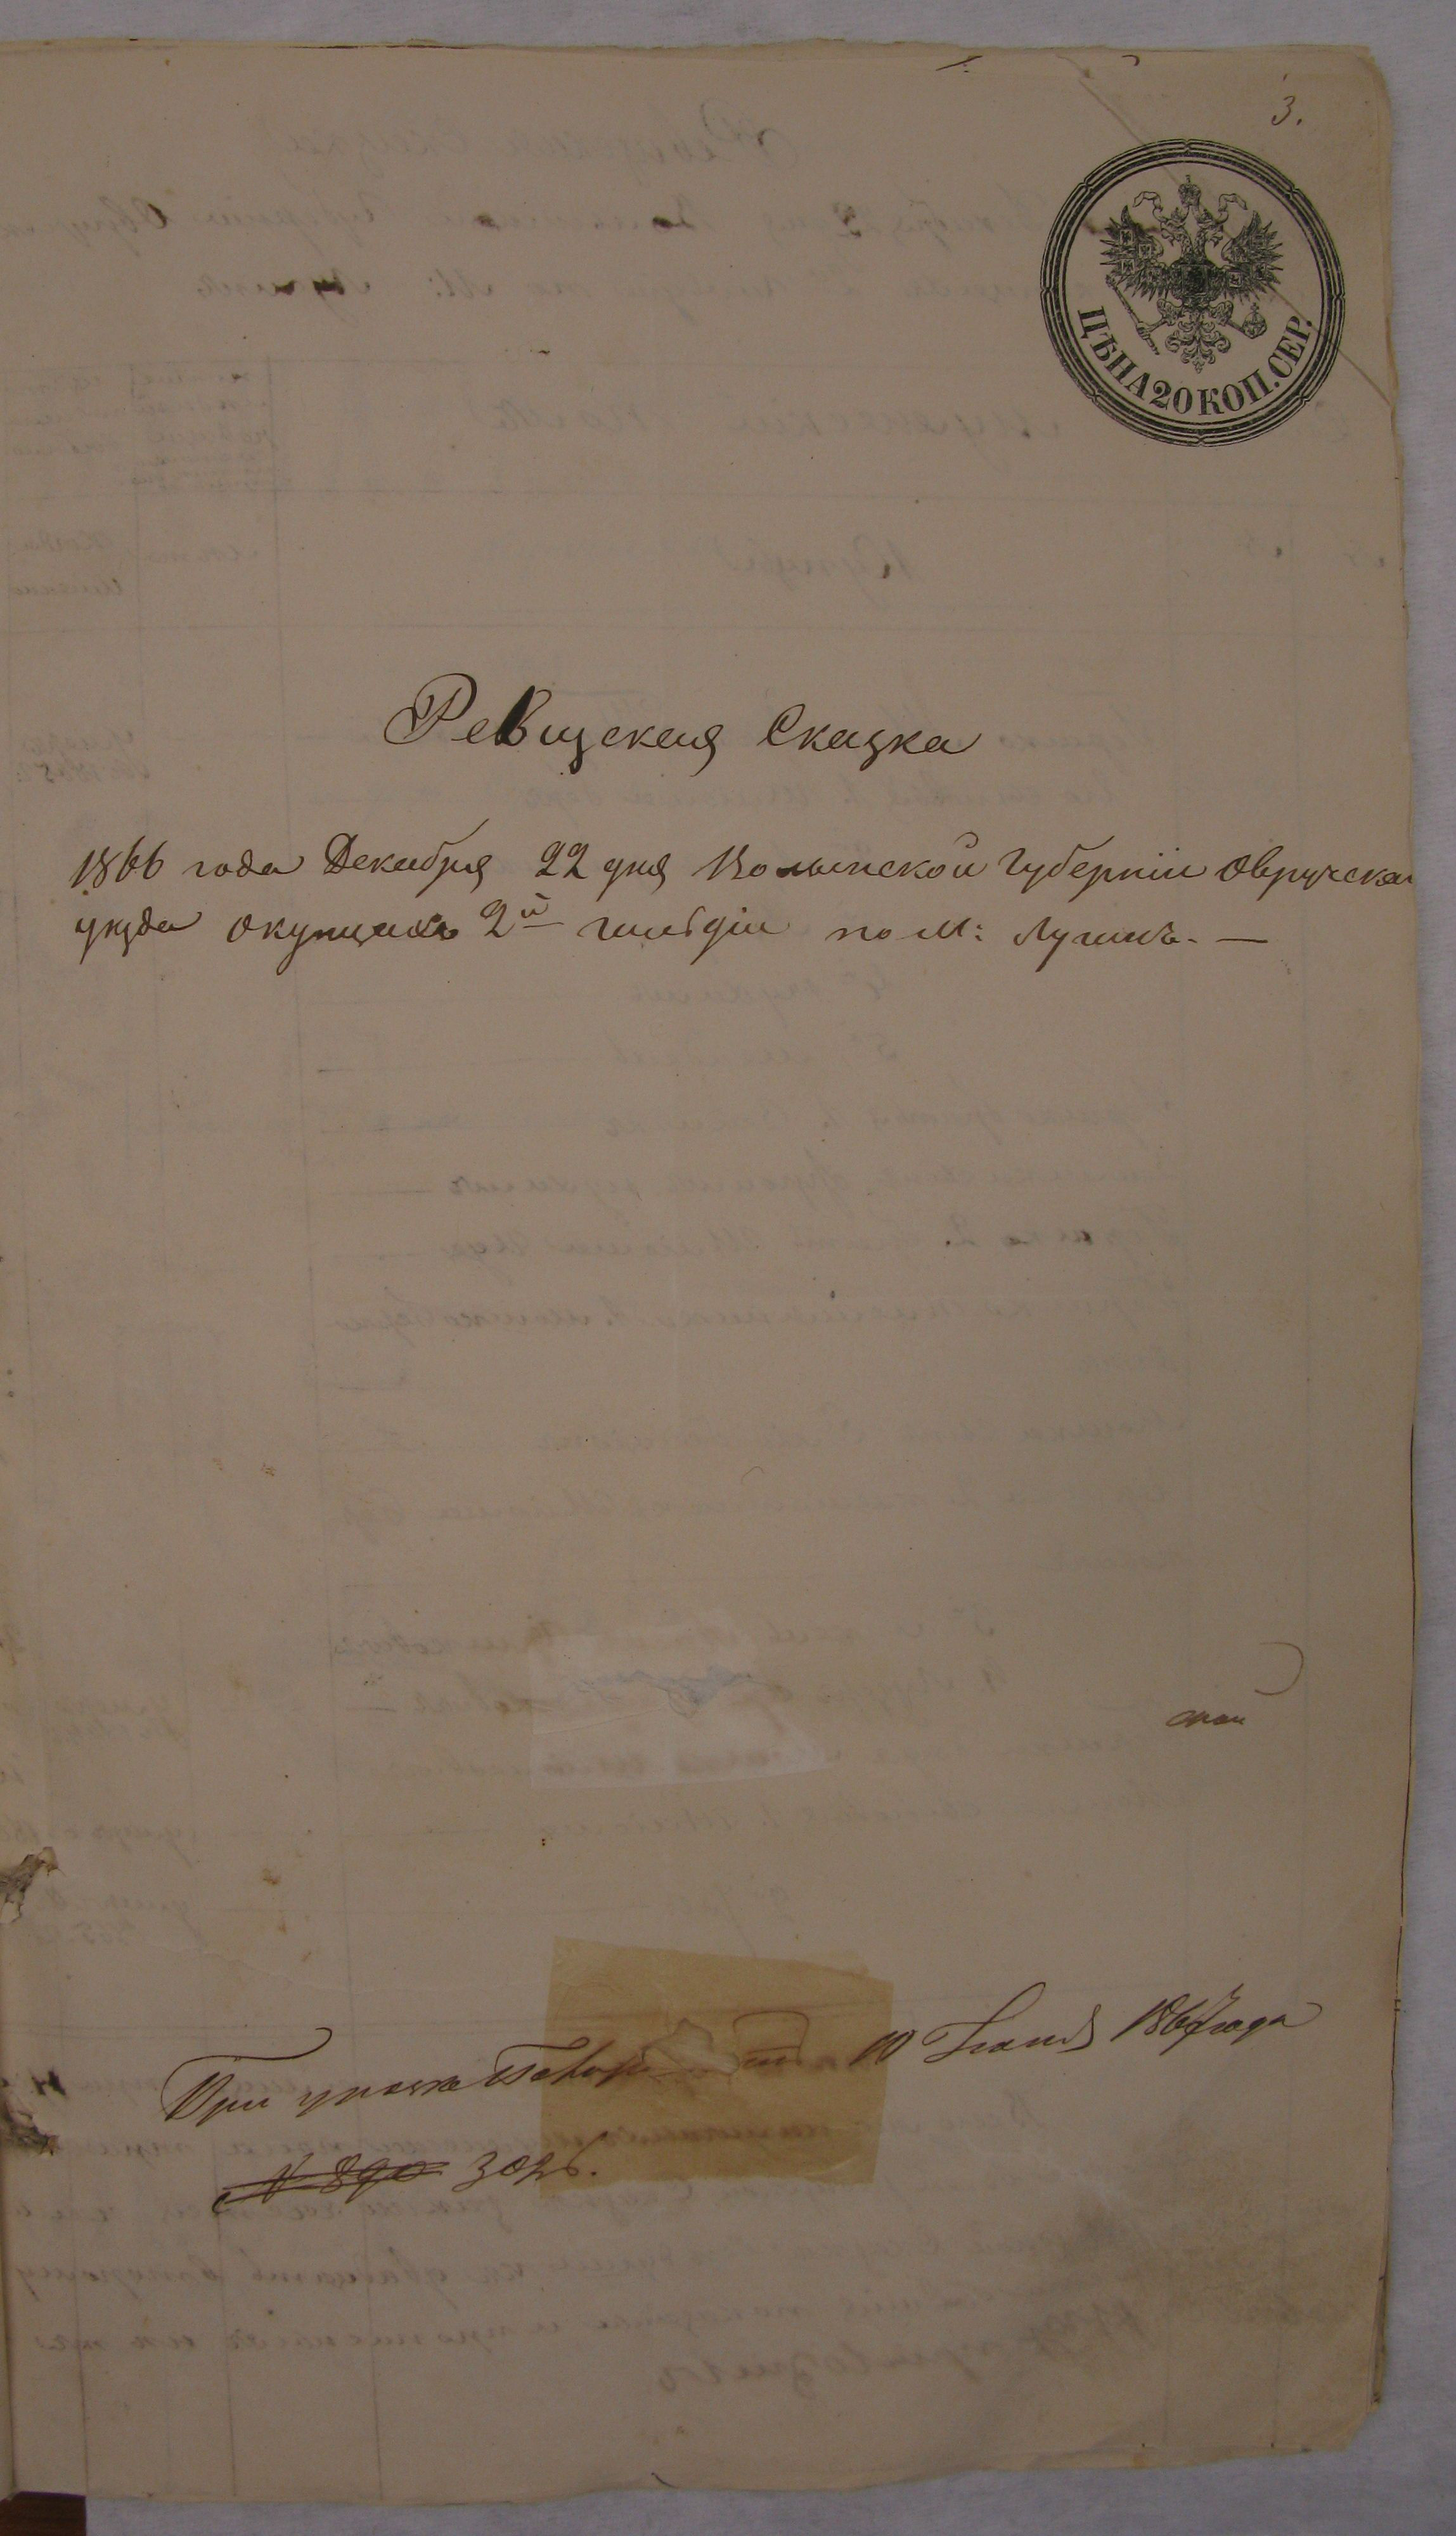 3.
ЦѢНА 20 КОП. СЕР.
Ревизская Сказка
1866 года Декабря 22 дня Волынской Губерніи Овручскаг
уѣзда о купцахъ 2й гильдіи по М: Лугинъ. —
При указѣ 10 1867 года
№ 890 3025.